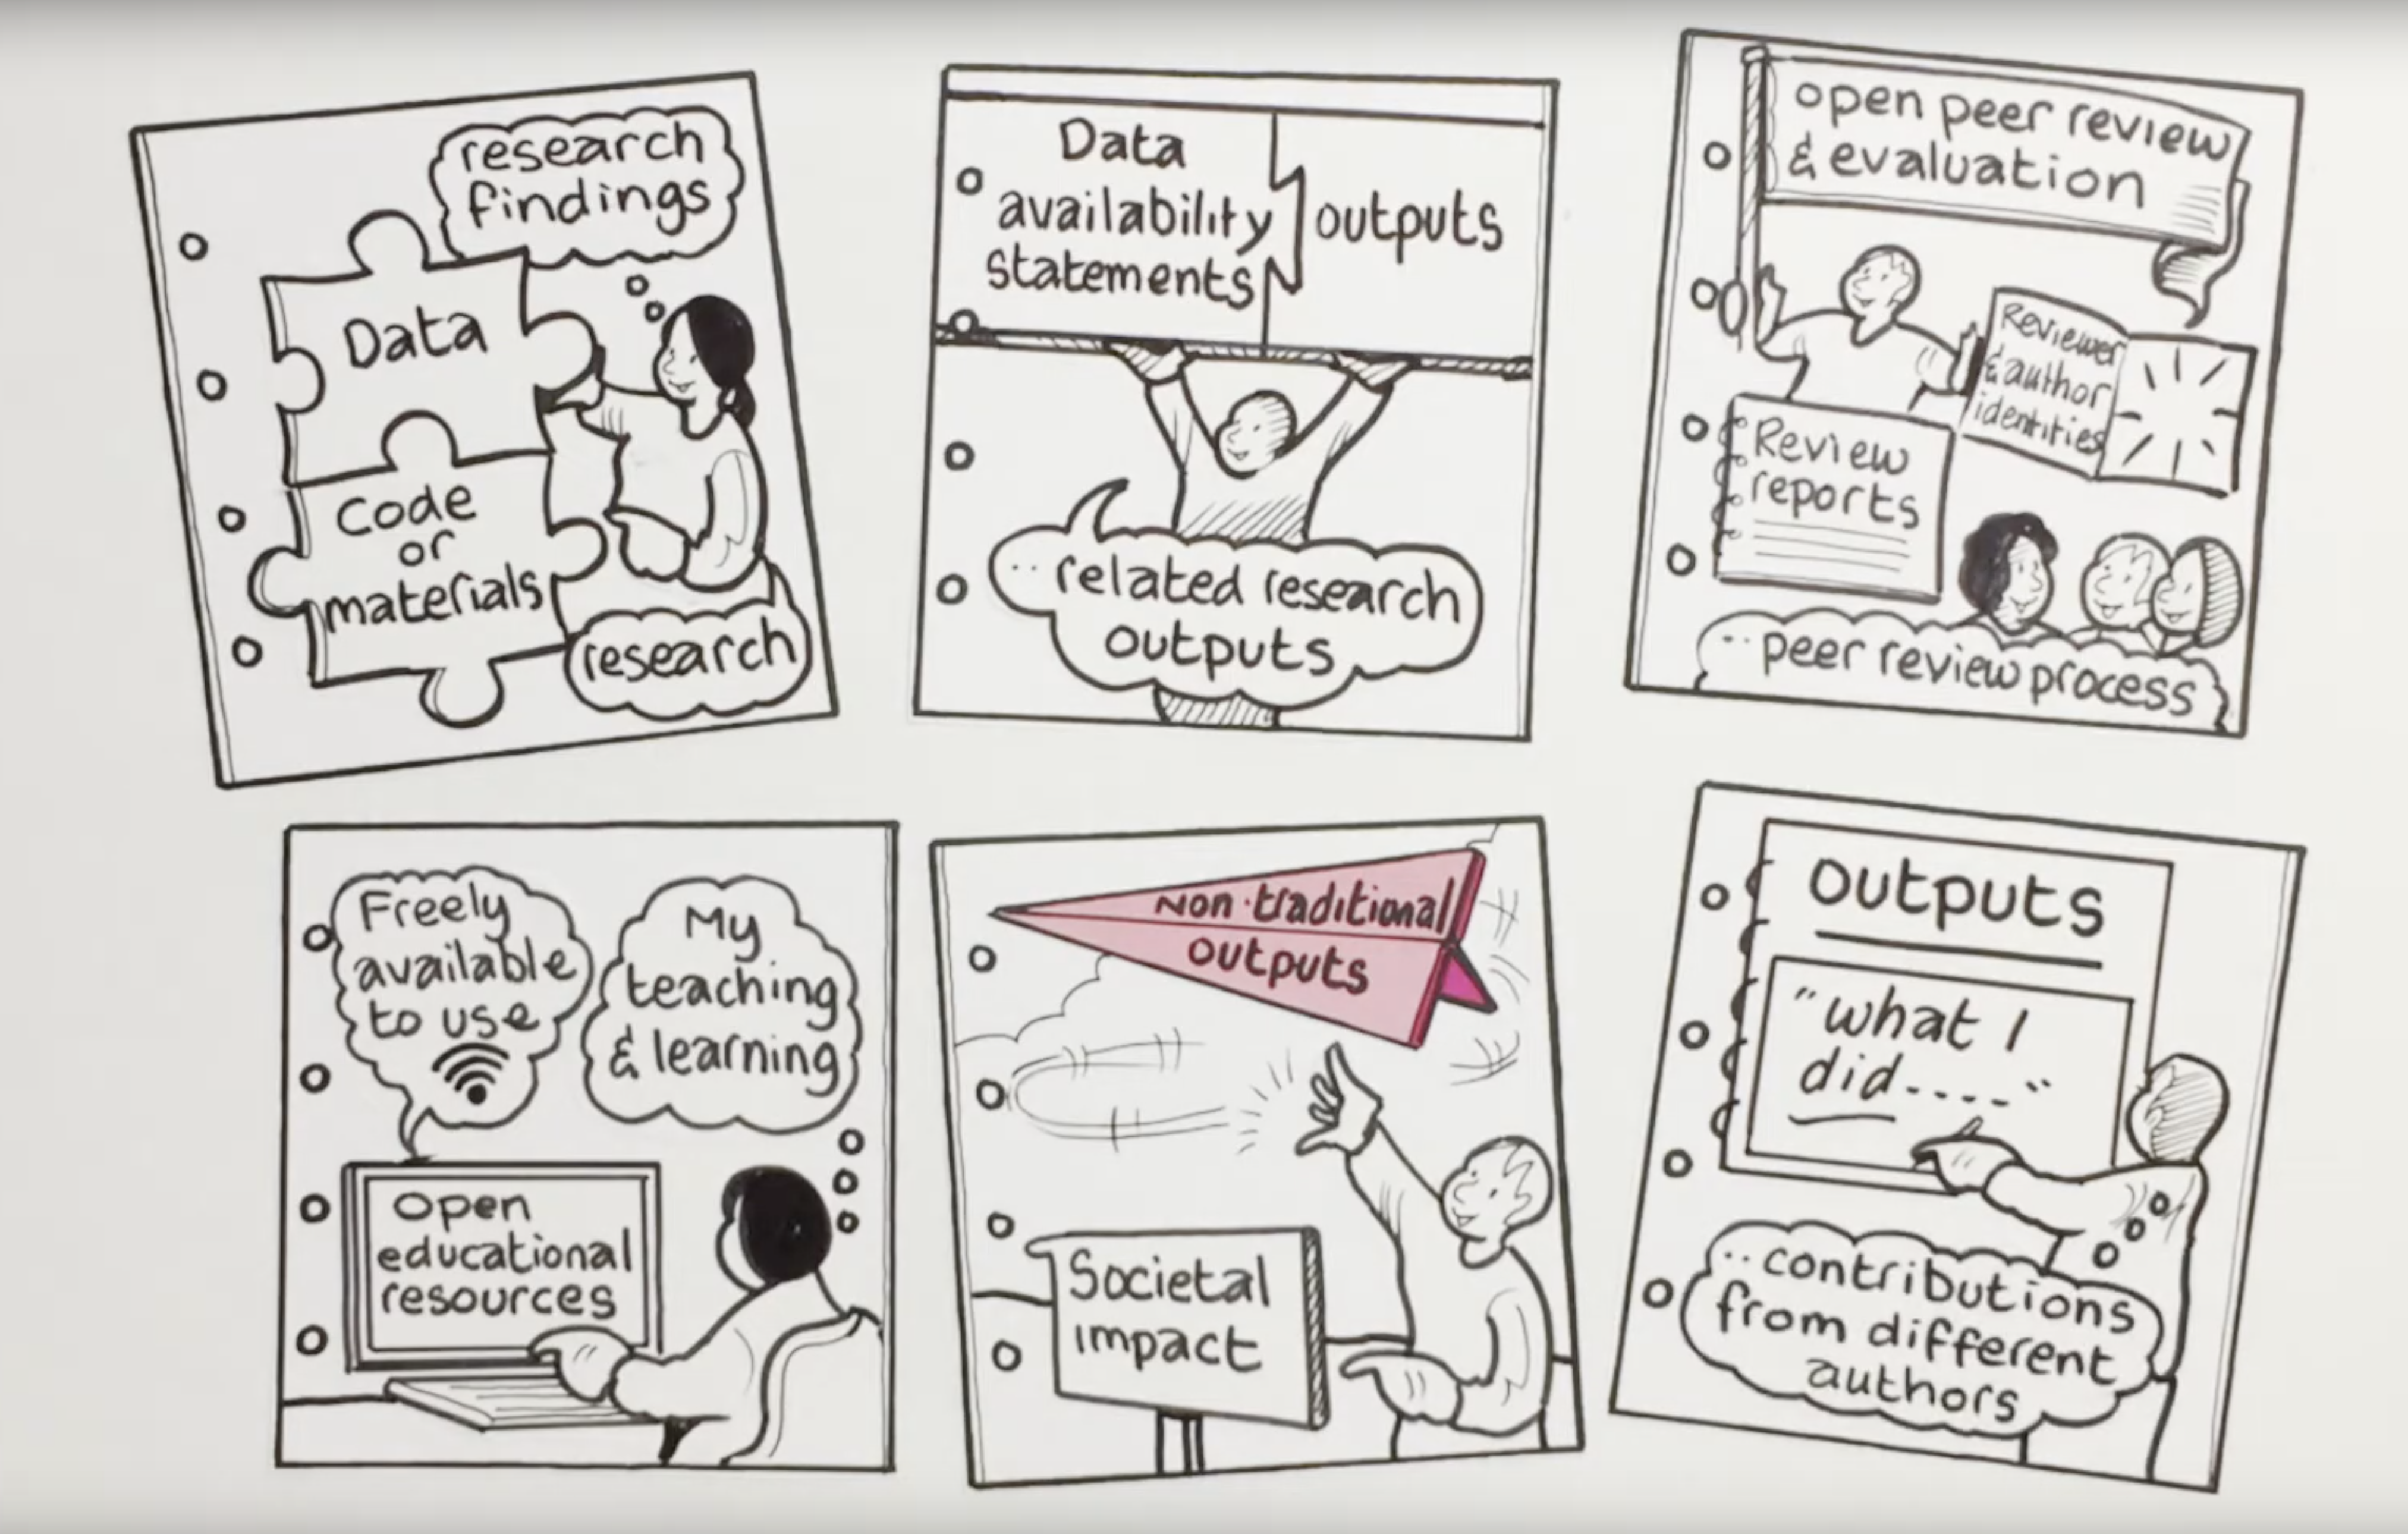 research
findings
Data
Code
or
materials
research
Data
availability
statements
outputs
.. related research
outputs
open peer review
& evaluation
Reviewer
& author
identities
Review
reports
.. peer review process
Freely
available
to use
My
teaching
& learning
Open
educational
resources
Non-traditional
outputs
Societal
impact
Outputs
"what I
did....."
..contributions
from different
authors